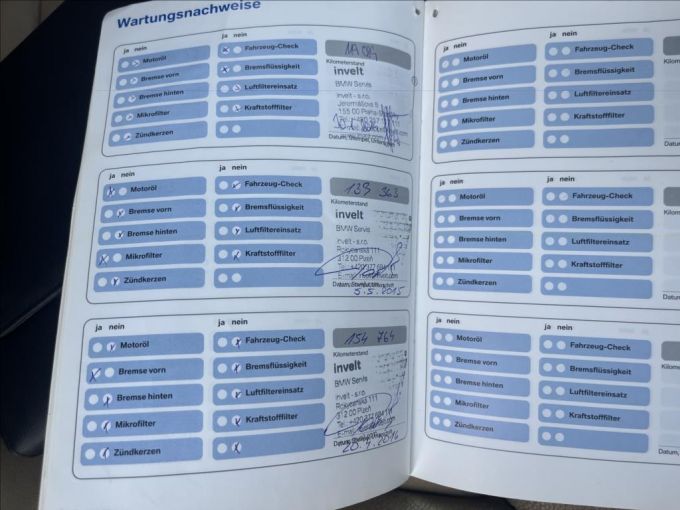 Wartungsnachweise
ja nein
ja nein
Motoröl
Fahrzeug-Check
Bremse vorn
Bremsflüssigkeit
Bremse hinten
Luftfiltereinsatz
Mikrofilter
Kraftstofffilter
Zündkerzen
Kilometerstand
invelt
BMW Servis
invelt - s.r.o.
Datum, Stempel, Unterschrift
ja nein
ja nein
Motoröl
Fahrzeug-Check
Bremse vorn
Bremsflüssigkeit
Bremse hinten
Luftfiltereinsatz
Mikrofilter
Kraftstofffilter
Zündkerzen
139 363
invelt
BMW Servis
invelt - s.r.o.
Rokycanská 111
312 00 Plzeň
5.5.2015
ja nein
ja nein
Motoröl
Fahrzeug-Check
Bremse vorn
Bremsflüssigkeit
Bremse hinten
Luftfiltereinsatz
Mikrofilter
Kraftstofffilter
Zündkerzen
154 764
Kilometerstand
invelt
BMW Servis
invelt - s.r.o.
Rokycanská 111
312 00 Plzeň
ja nein
ja nein
Motoröl
Fahrzeug-Check
Bremse vorn
Bremsflüssigkeit
Bremse hinten
Luftfiltereinsatz
Mikrofilter
Kraftstofffilter
Zündkerzen
Datum,
ja nein
ja nein
Motoröl
Fahrzeug-Check
Bremse vorn
Bremsflüssigkeit
Bremse hinten
Luftfiltereinsatz
Mikrofilter
Kraftstofffilter
Zündkerzen
Datum,
ja nein
ja nein
Motoröl
Fahrzeug-Check
Bremse vorn
Bremsflüssigkeit
Bremse hinten
Luftfiltereinsatz
Mikrofilter
Kraftstofffilter
Zündkerzen
Datum,